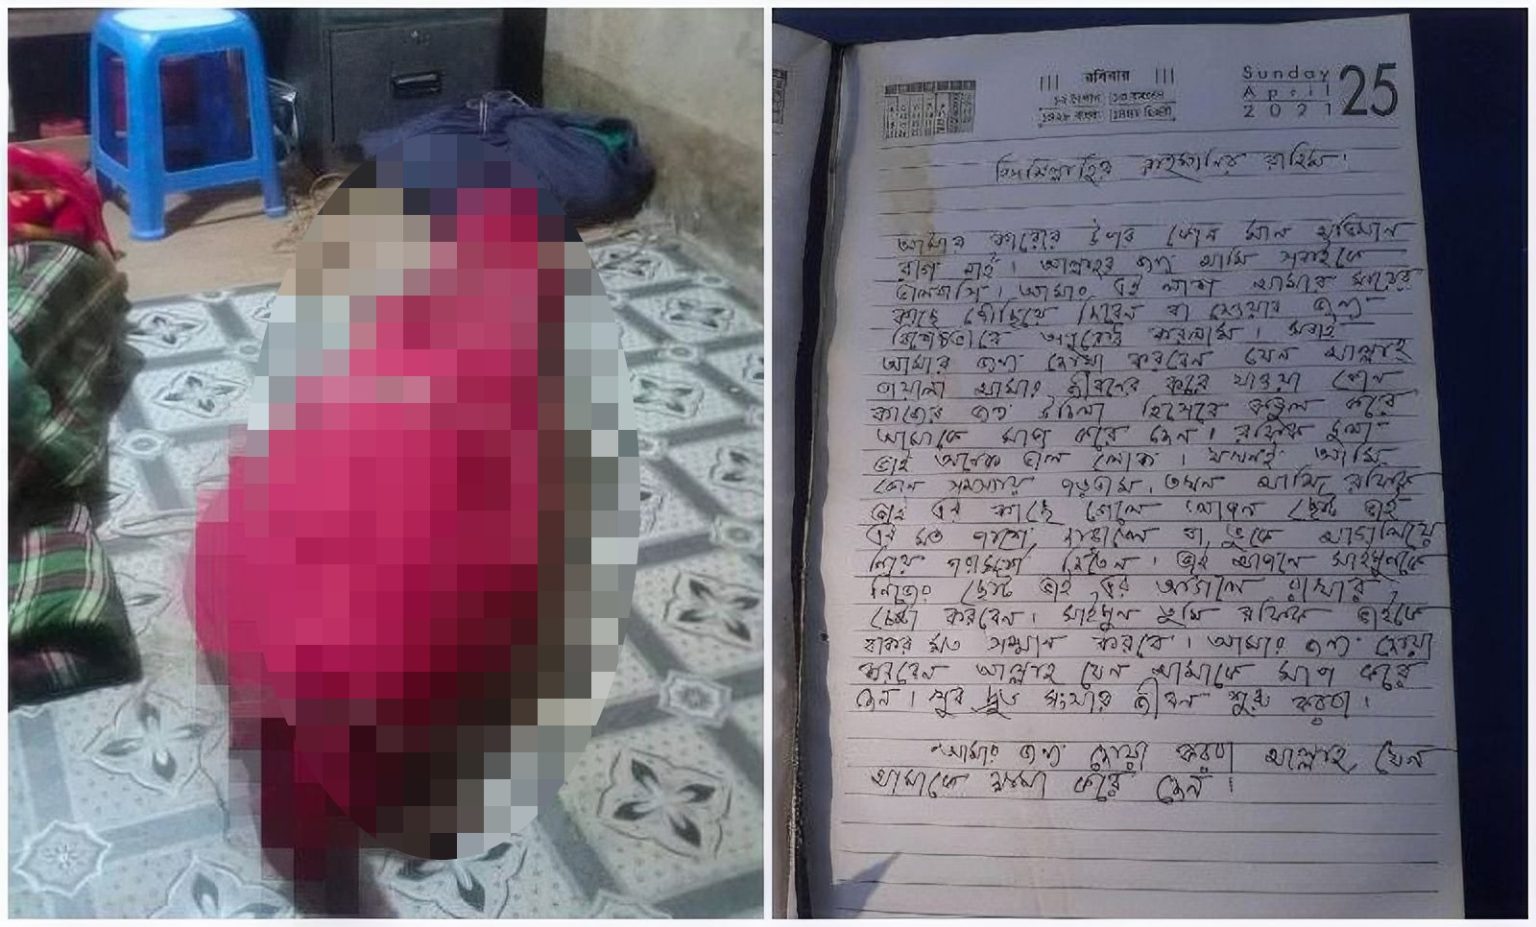 রবিবার
Sunday
April
2021
25
বিসমিল্লাহির রাহমানির রাহিম।
আমার কারোর উপর কোন মান অভিমান
রাগ নাই। আল্লাহর জন্য আমি সবাইকে
ভালবাসি। আমার এই লাশ আমার মায়ের
কাছে পৌঁছিয়ে দিবেন বা দেওয়ার জন্য
বিশেষভাবে অনুরোধ করলাম। সবাই
আমার জন্য দোয়া করবেন যেন আল্লাহ
তায়ালা আমার জীবনের করে যাওয়া কোন
কাজের জন্য উছিলা হিসেবে কবুল করে
আমাকে মাপ করে দেন। রফিক
ভাই অনেক ভাল লোক। যখনই আমি
কোন সমস্যায় পড়তাম, তখন আমি রফিক
ভাই এর কাছে গেলে আপন ছোট ভাই
এর মত পাশে বা বুকে
নিয়ে পরামর্শ দিতেন। ভাই আপনি
নিজের ছোট ভাই এর রাখার
চেষ্টা করবেন। তুমি রফিক ভাইকে
মত সম্মান করবে। আমার জন্য দোয়া
করবেন আল্লাহ যেন আমাকে মাপ করে
দেন। খুব দ্রুত সংসার জীবন শুরু করবা।
আমার জন্য দোয়া করবা আল্লাহ যেন
আমাকে ক্ষমা করে দেন।